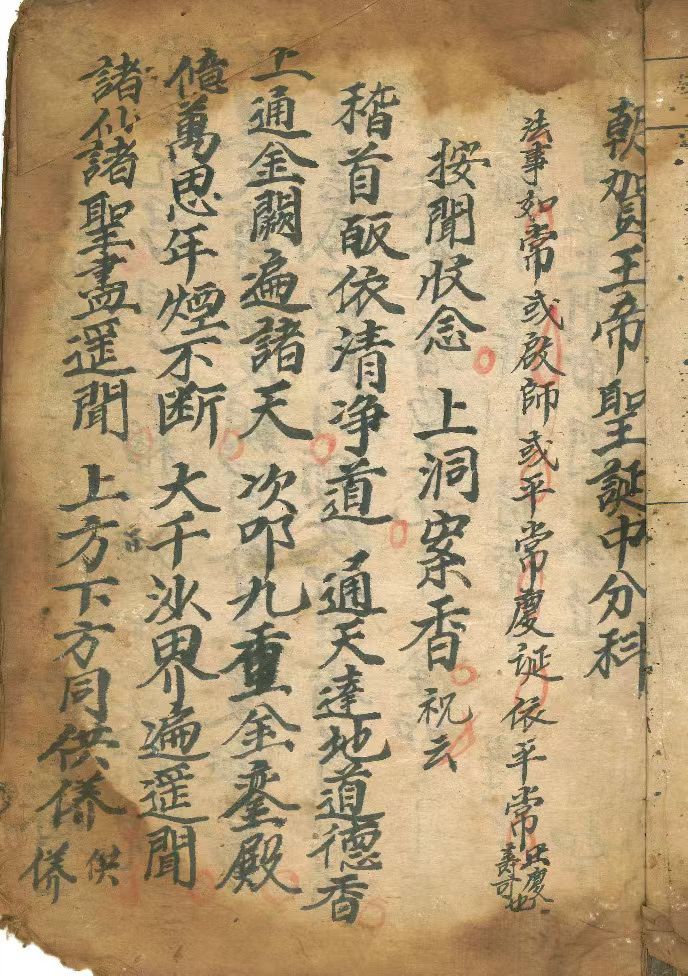 朝賀王帝聖誕中分科
法事如常或啟師或平常慶誕依平常
壽可也
按聞收念 上洞案香 祝云
稽首皈依清净道 通天達地道德香
上通金闕遍諸天 次叩九重金鑾殿
億萬思年煙不断 大千沙界遍遥聞
諸仙諸聖盡遥聞 上方下方同供養
供養